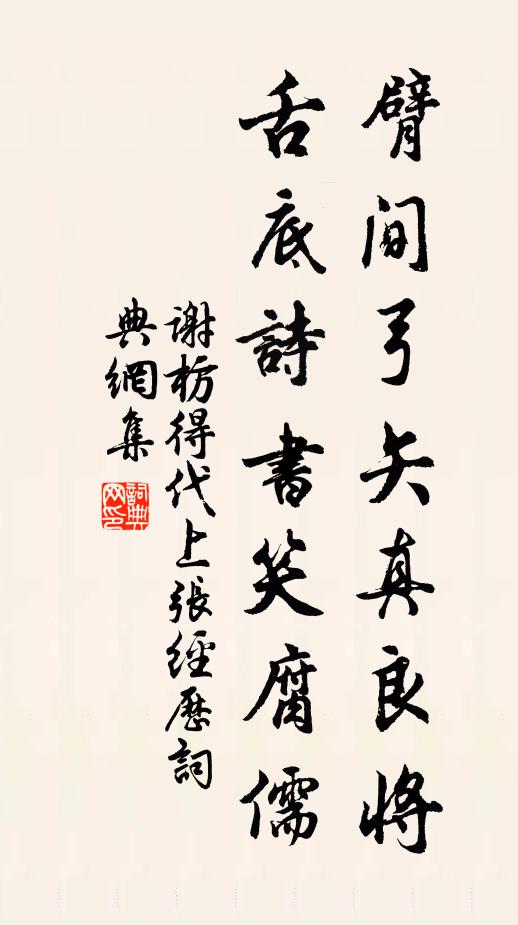 臂間弓矢真良將
舌底詩書笑腐儒
謝枋得代上張經歷詞
典網集
詞典网印